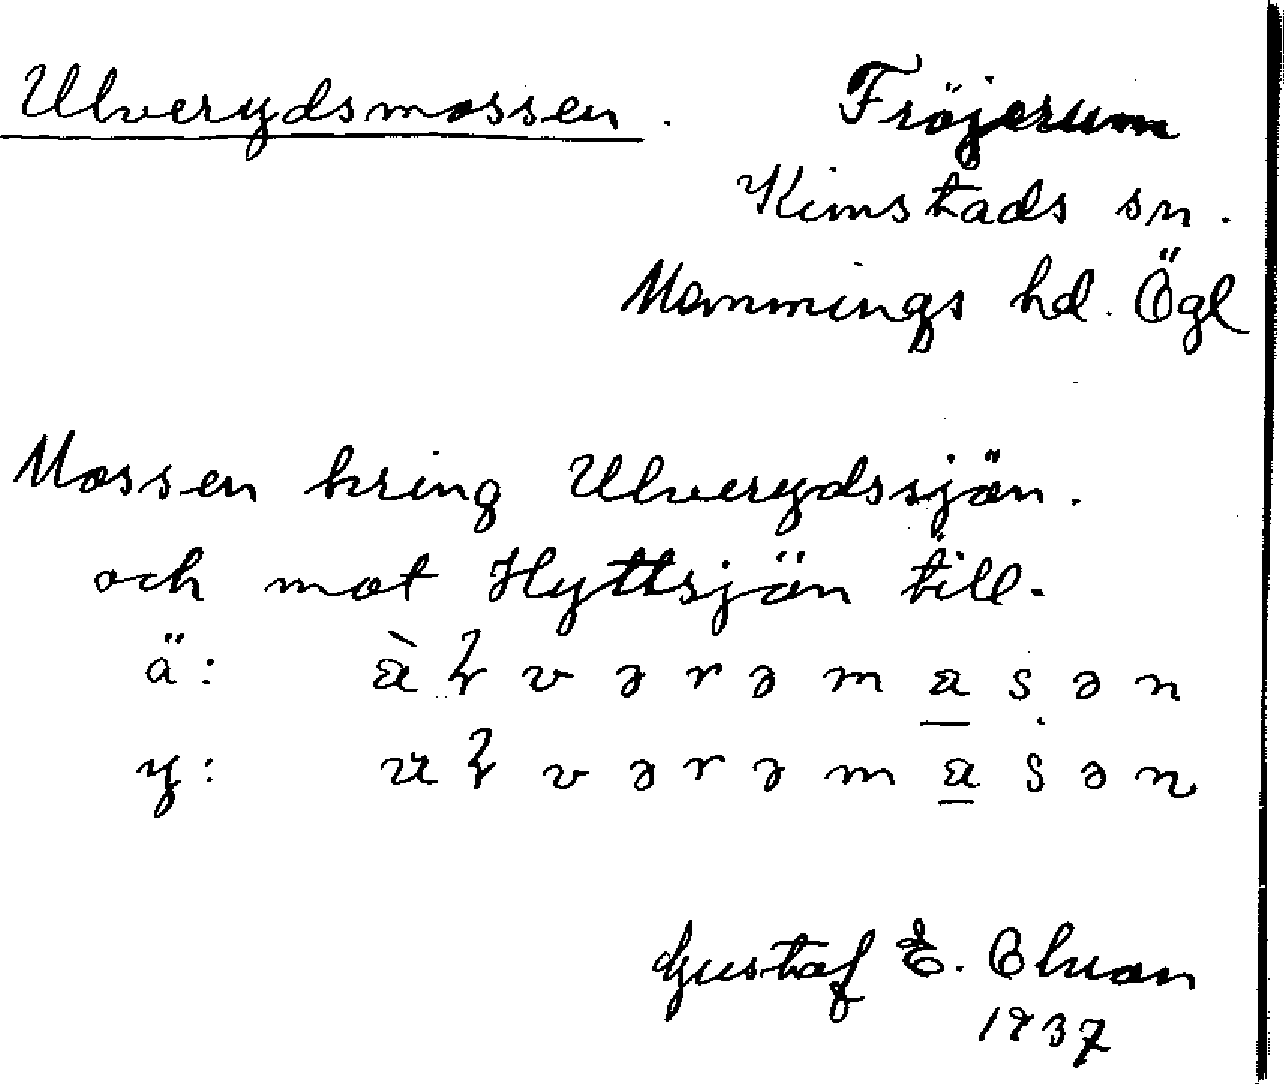 Ulverydsmossen. Fröjerum
Kimstads sn.
Memmings hd. Ögl
Mossen kring Ulverydssjön.
och mot Hyttsjön till.
ä:
y:
Gustaf E. Olson
1937